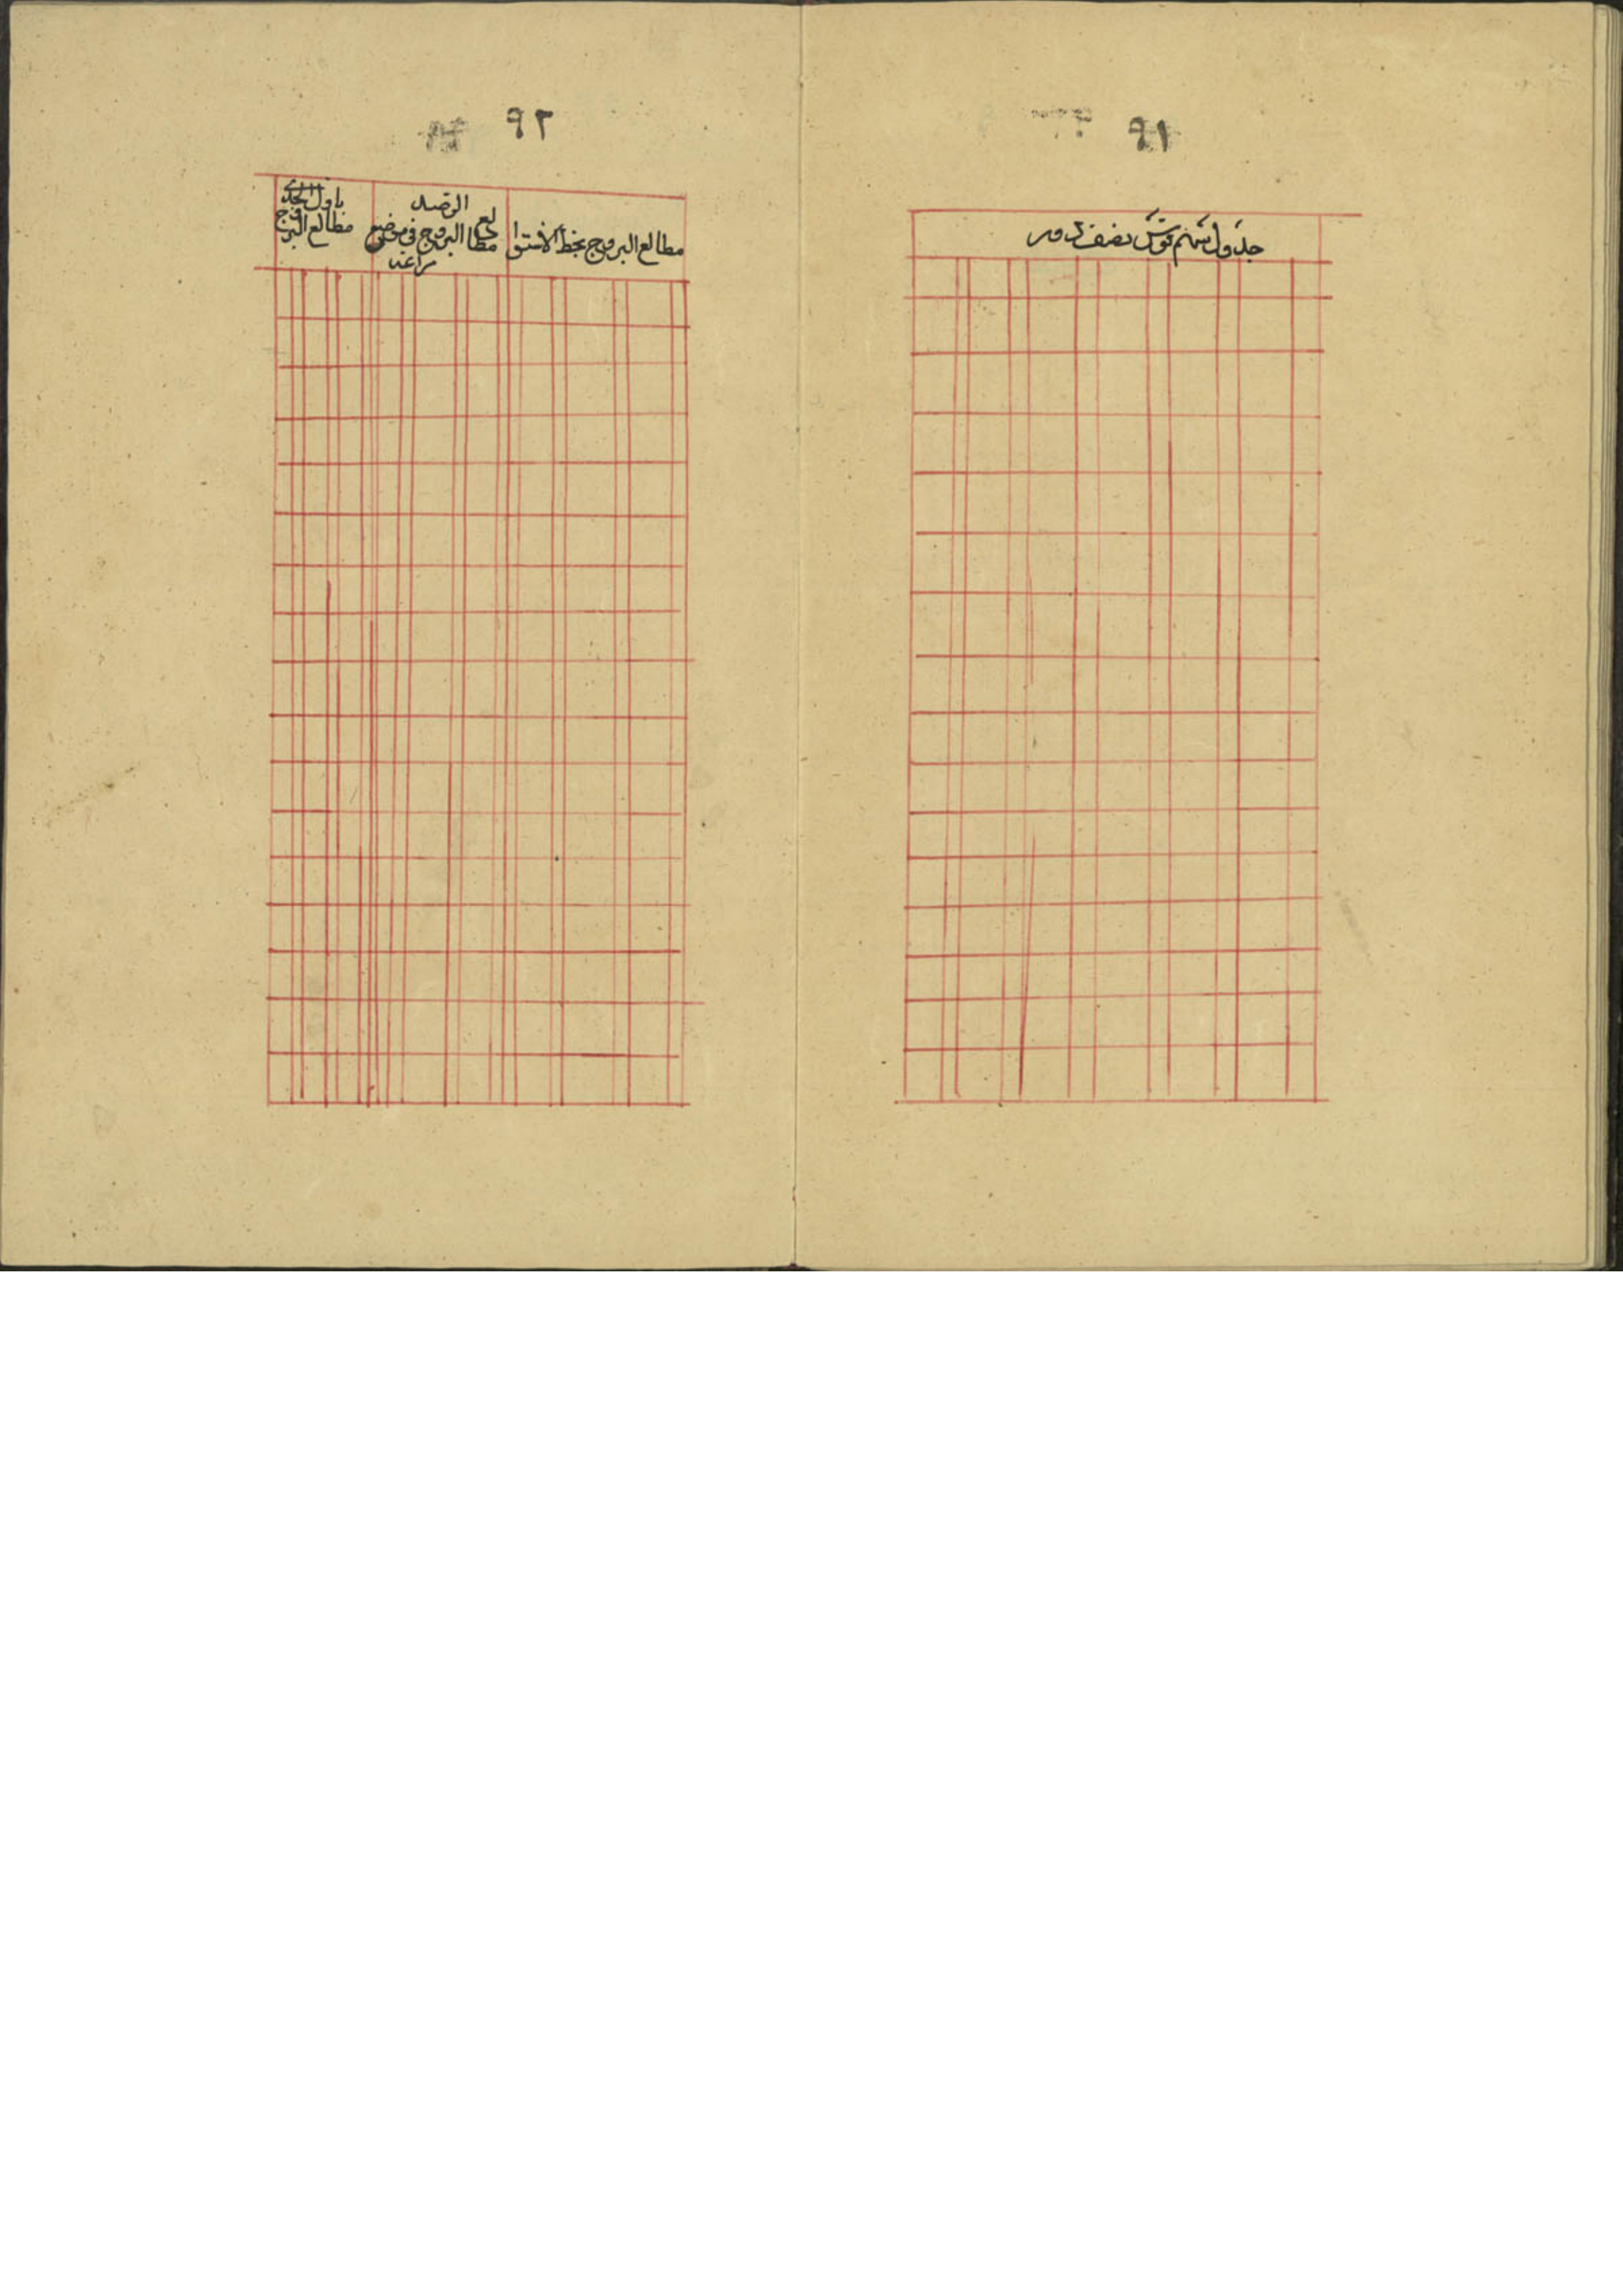 ٩١
جدول سهم قوس نصف دور
٩٢
مطالع البروج بخط الاستوا
مطالع البروج فى موضع
الرصد
مراغه
مطالع البروج
باول الجدى